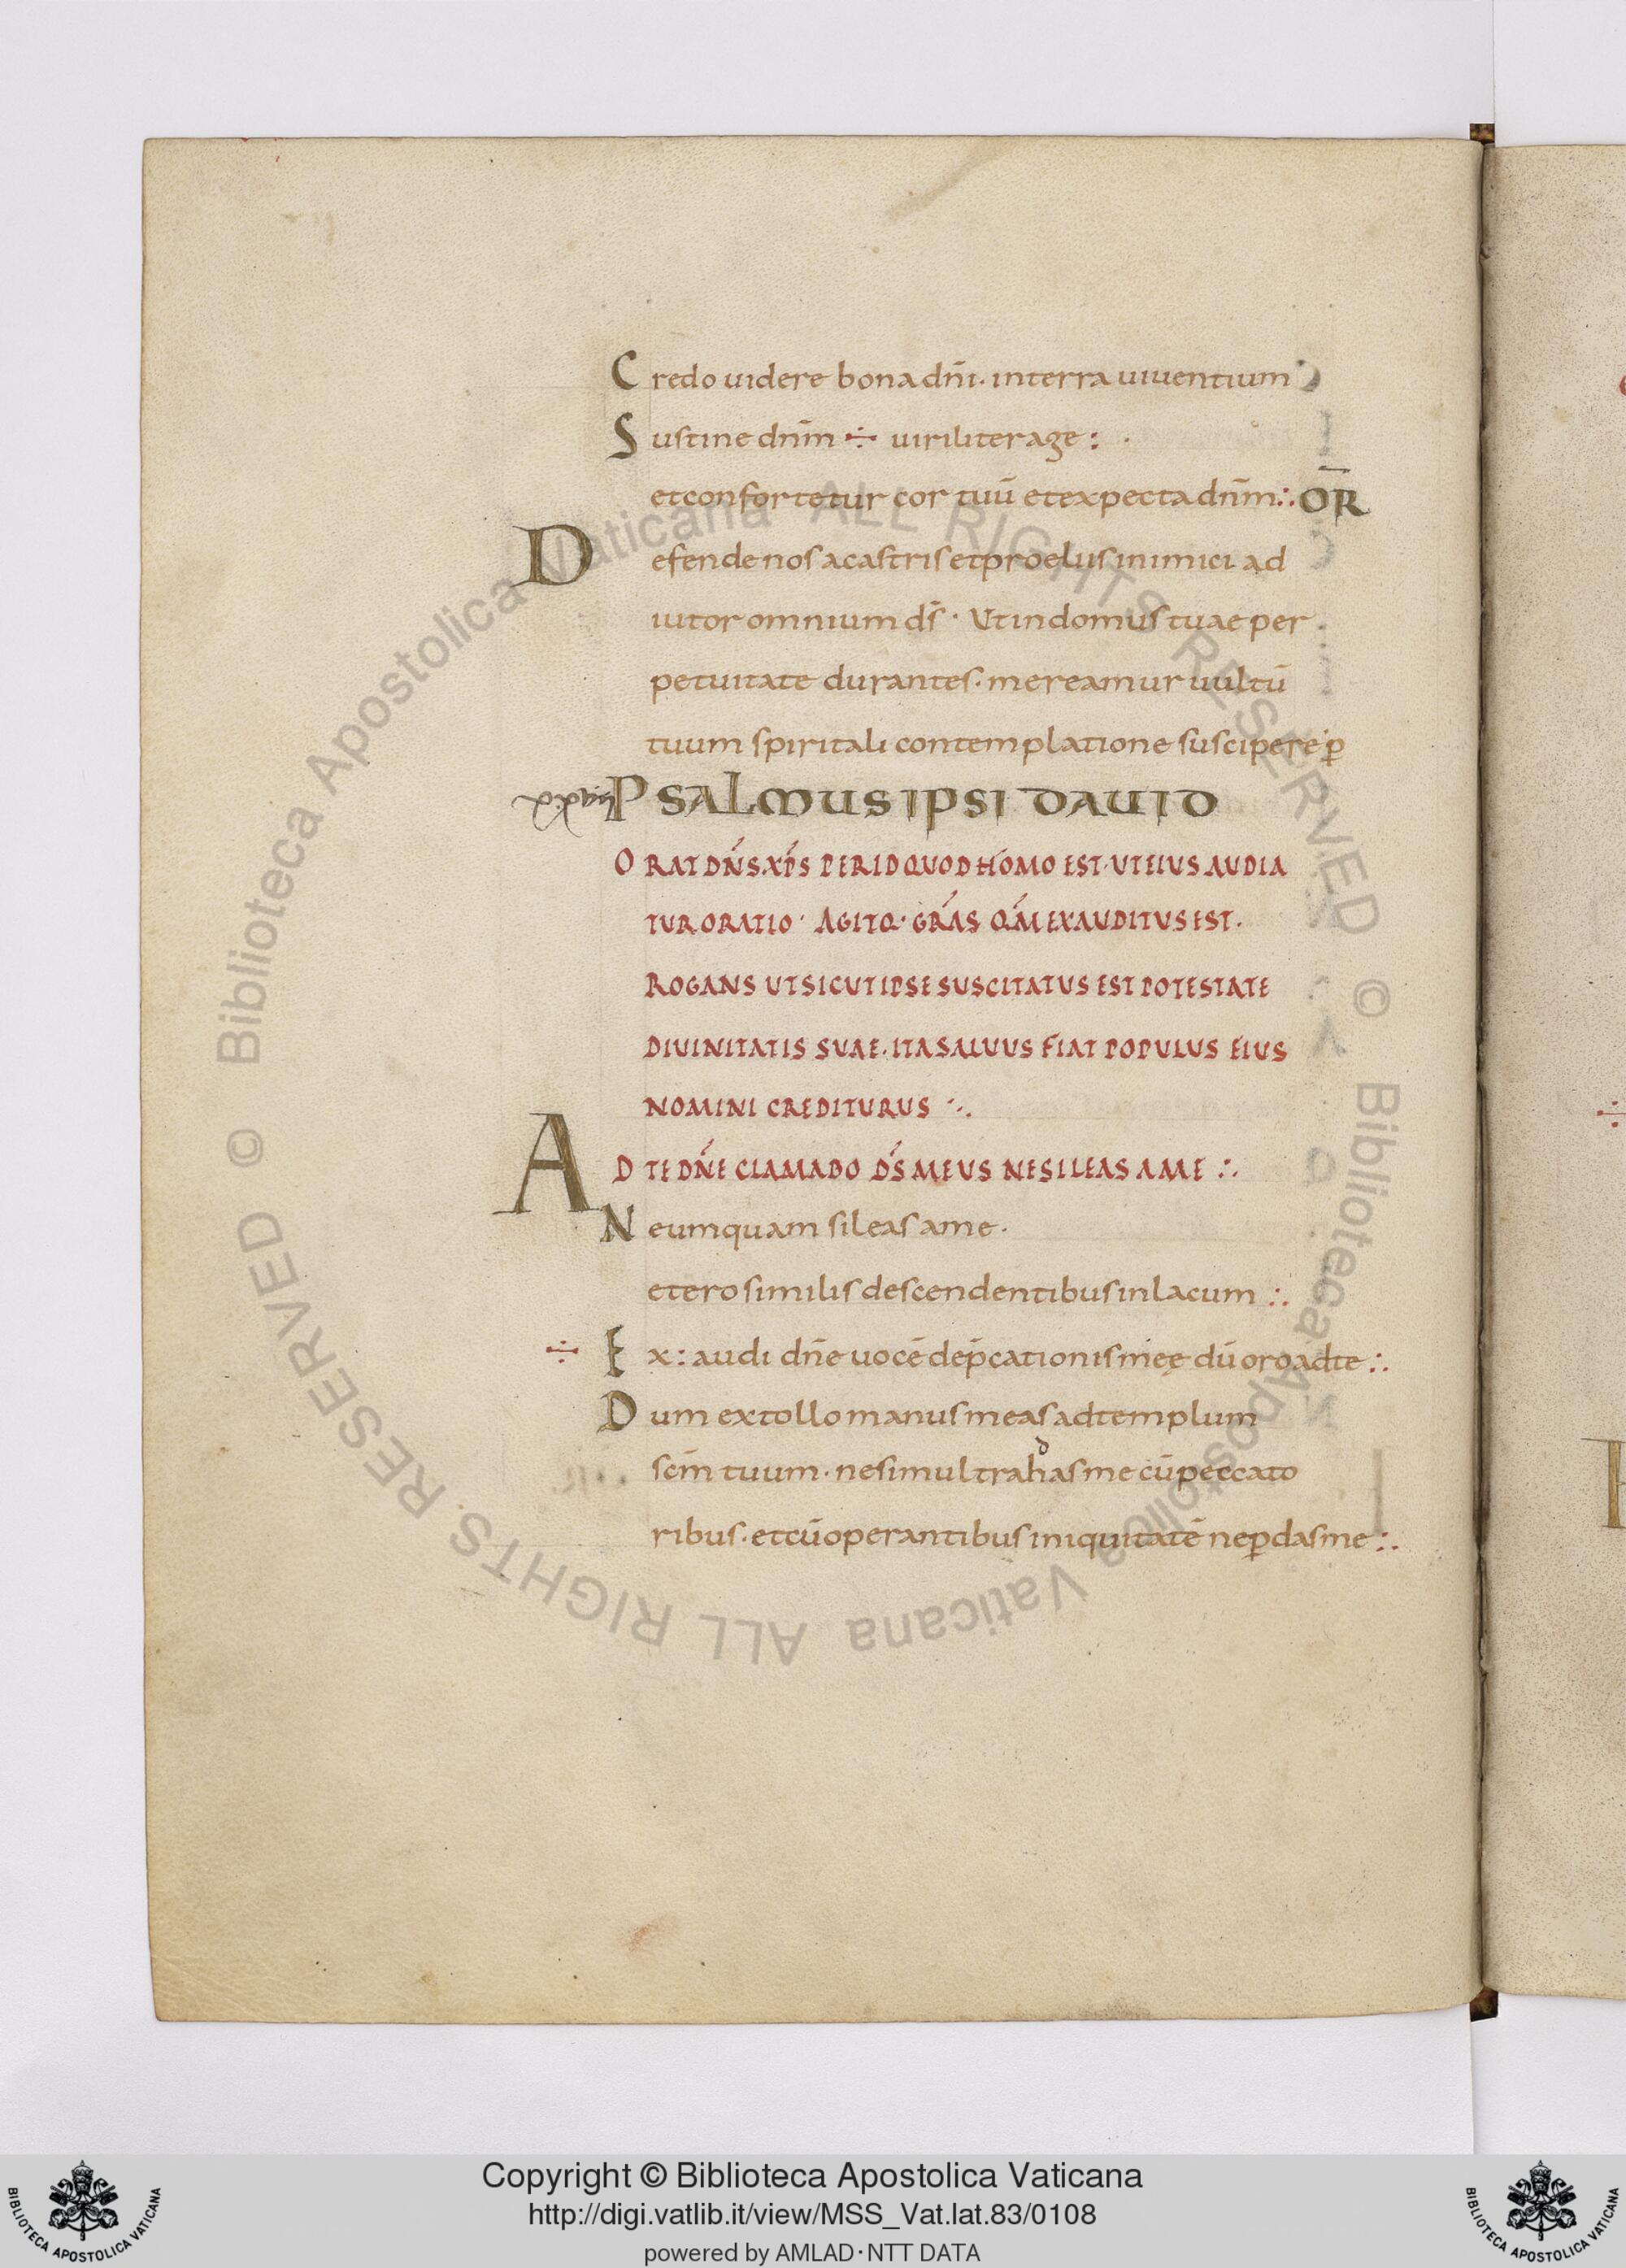 Credo uidere bona dñi· in terra uiuentium
Sustine dnm̄ ÷ uiriliter age :
et confortetur cor tuū et expecta dnm̄ :· OR̄
Defende nos a castris et proeliis inimici ad
iutor omnium ds̄ · Ut in domus tuae per
petuitate durantes· mereamur uultū
tuum spiritali contemplatione suscipere· ꝑ
xxvii PSALMUS IPSI DAUID
ORAT DN̄S XP̄S PER ID QUOD HOMO EST· UT EIUS AUDIA
TUR ORATIO· AGITQ· GRĀS QM̄ EXAUDITUS EST·
ROGANS UT SICUT IPSE SUSCITATUS EST POTESTATE
DIUINITATIS SUAE· ITA SALUUS FIAT POPULUS EIUS
NOMINI CREDITURUS ·.·
AD TE DN̄E CLAMABO DS̄ MEUS NE SILEAS A ME :·
Neumquam sileas a me·
et ero similis descendentibus in lacum :·
÷ Ex : audi dn̄e uocē dep̄cationis meę dū oro ad te :·
Dum extollo manus meas ad templum
d
scm̄ tuum· ne simul trahas me cū peccato
ribus· et cū operantibus iniquitatē ne ꝑdas me :·
Copyright © Biblioteca Apostolica Vaticana
http://digi.vatlib.it/view/MSS_Vat.lat.83/0108
powered by AMLAD·NTT DATA
BIBLIOTECA APOSTOLICA VATICANA
BIBLIOTECA APOSTOLICA VATICANA
© Biblioteca Apostolica Vaticana ALL RIGHTS RESERVED © Biblioteca Apostolica Vaticana ALL RIGHTS RESERVED